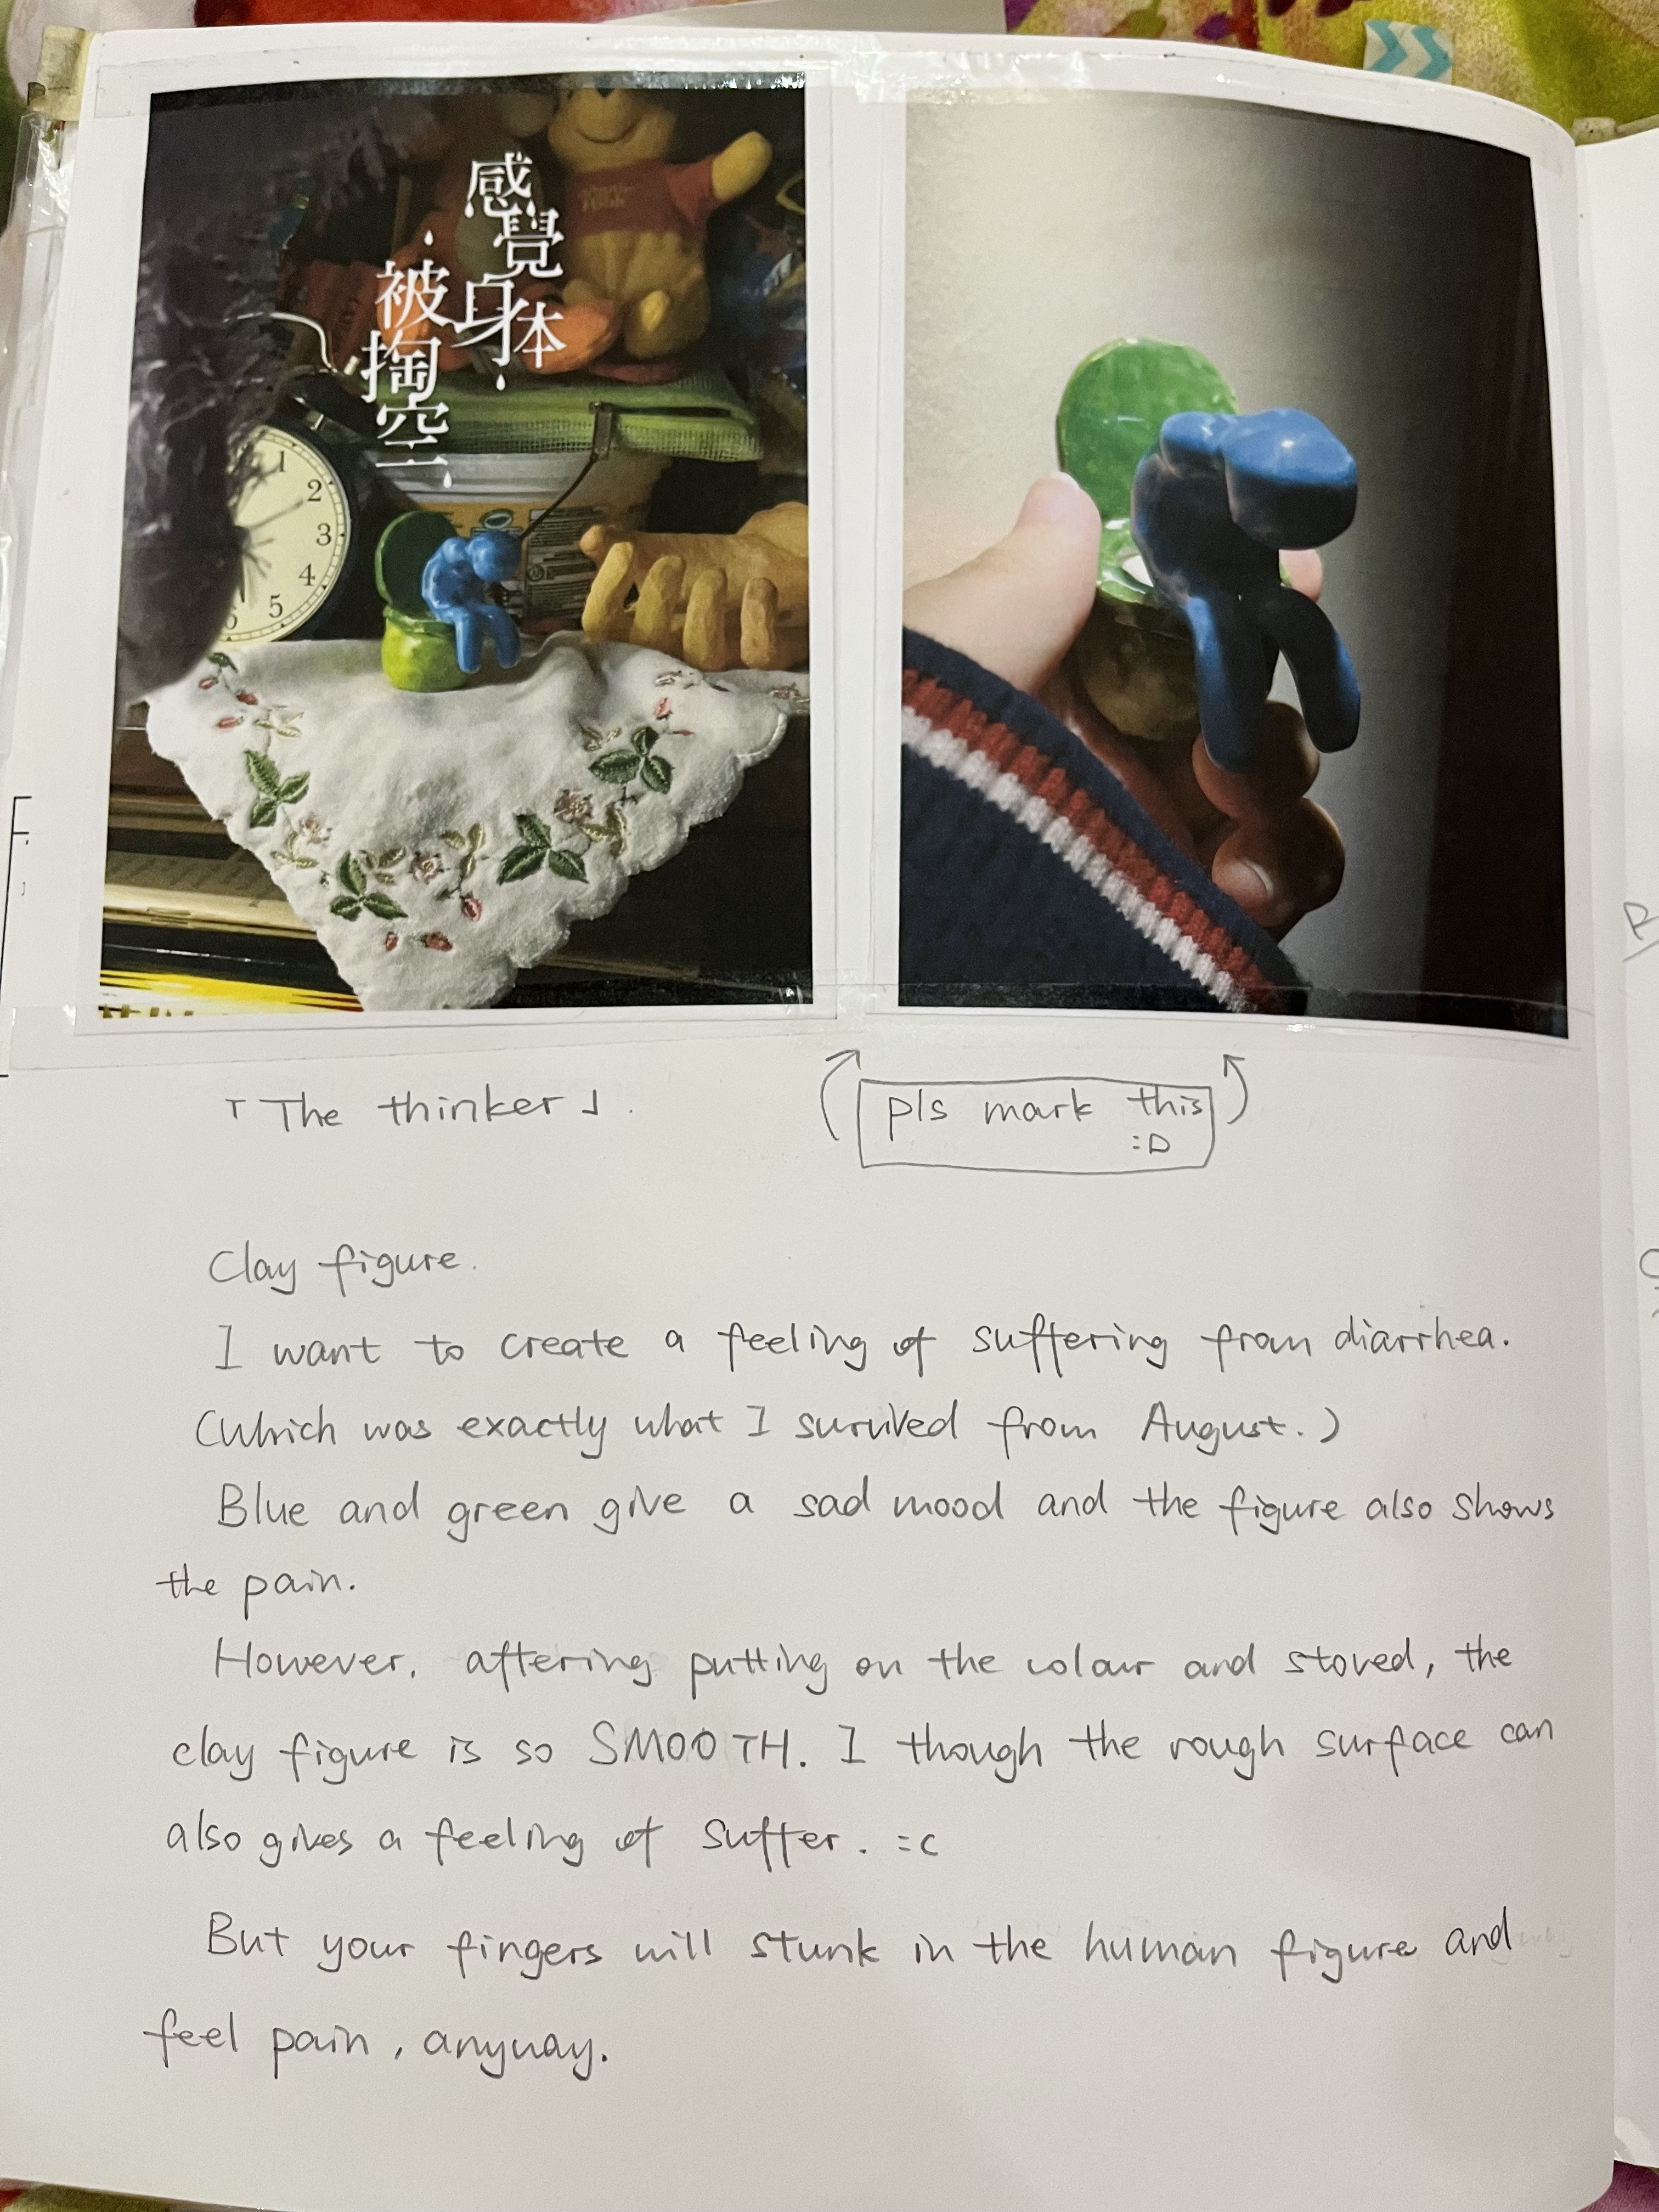 感覺身体
被掏空
1
2
3
4
5
6
「The thinker」.
pls mark this
:D
Clay figure.
I want to create a feeling of suffering from diarrhea.
(Which was exactly what I survived from August.)
Blue and green give a sad mood and the figure also shows
the pain.
However, aftering putting on the colour and stoved, the
clay figure is so SMOOTH. I though the rough surface can
also gives a feeling of suffer. =c
But your fingers will stunk in the human figure and
feel pain, anyway.